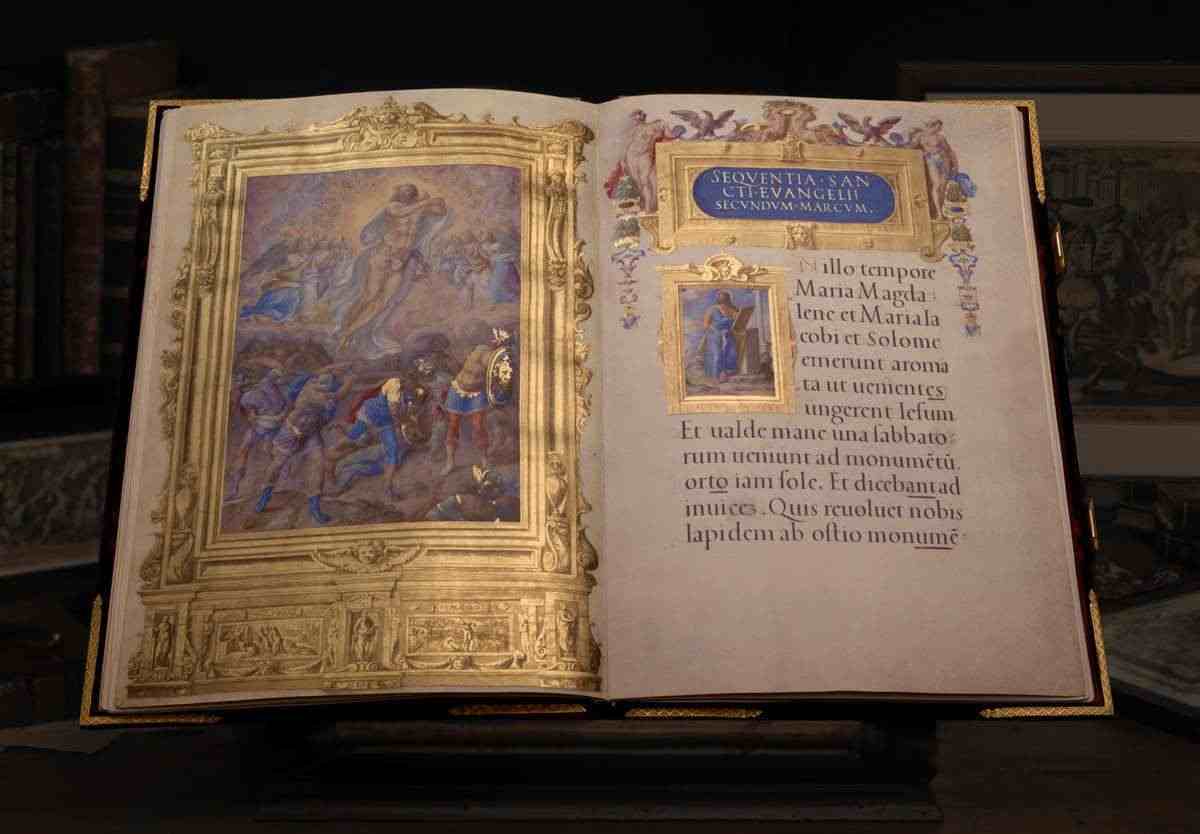 SEQVENTIA·SAN
CTI·EVANGELII
SECVNDVM·MARCVM.
N illo tempore
Maria Magda⹀
lene et Maria Ia
cobi et Solome
emerunt aroma
ta ut uenientes
ungerent Iesum
Et ualde mane una sabbato⹀
rum ueniunt ad monumētū.
orto iam sole. Et dicebant ad
inuicē. Quis reuoluet nobis
lapidem ab ostio monumē⹀